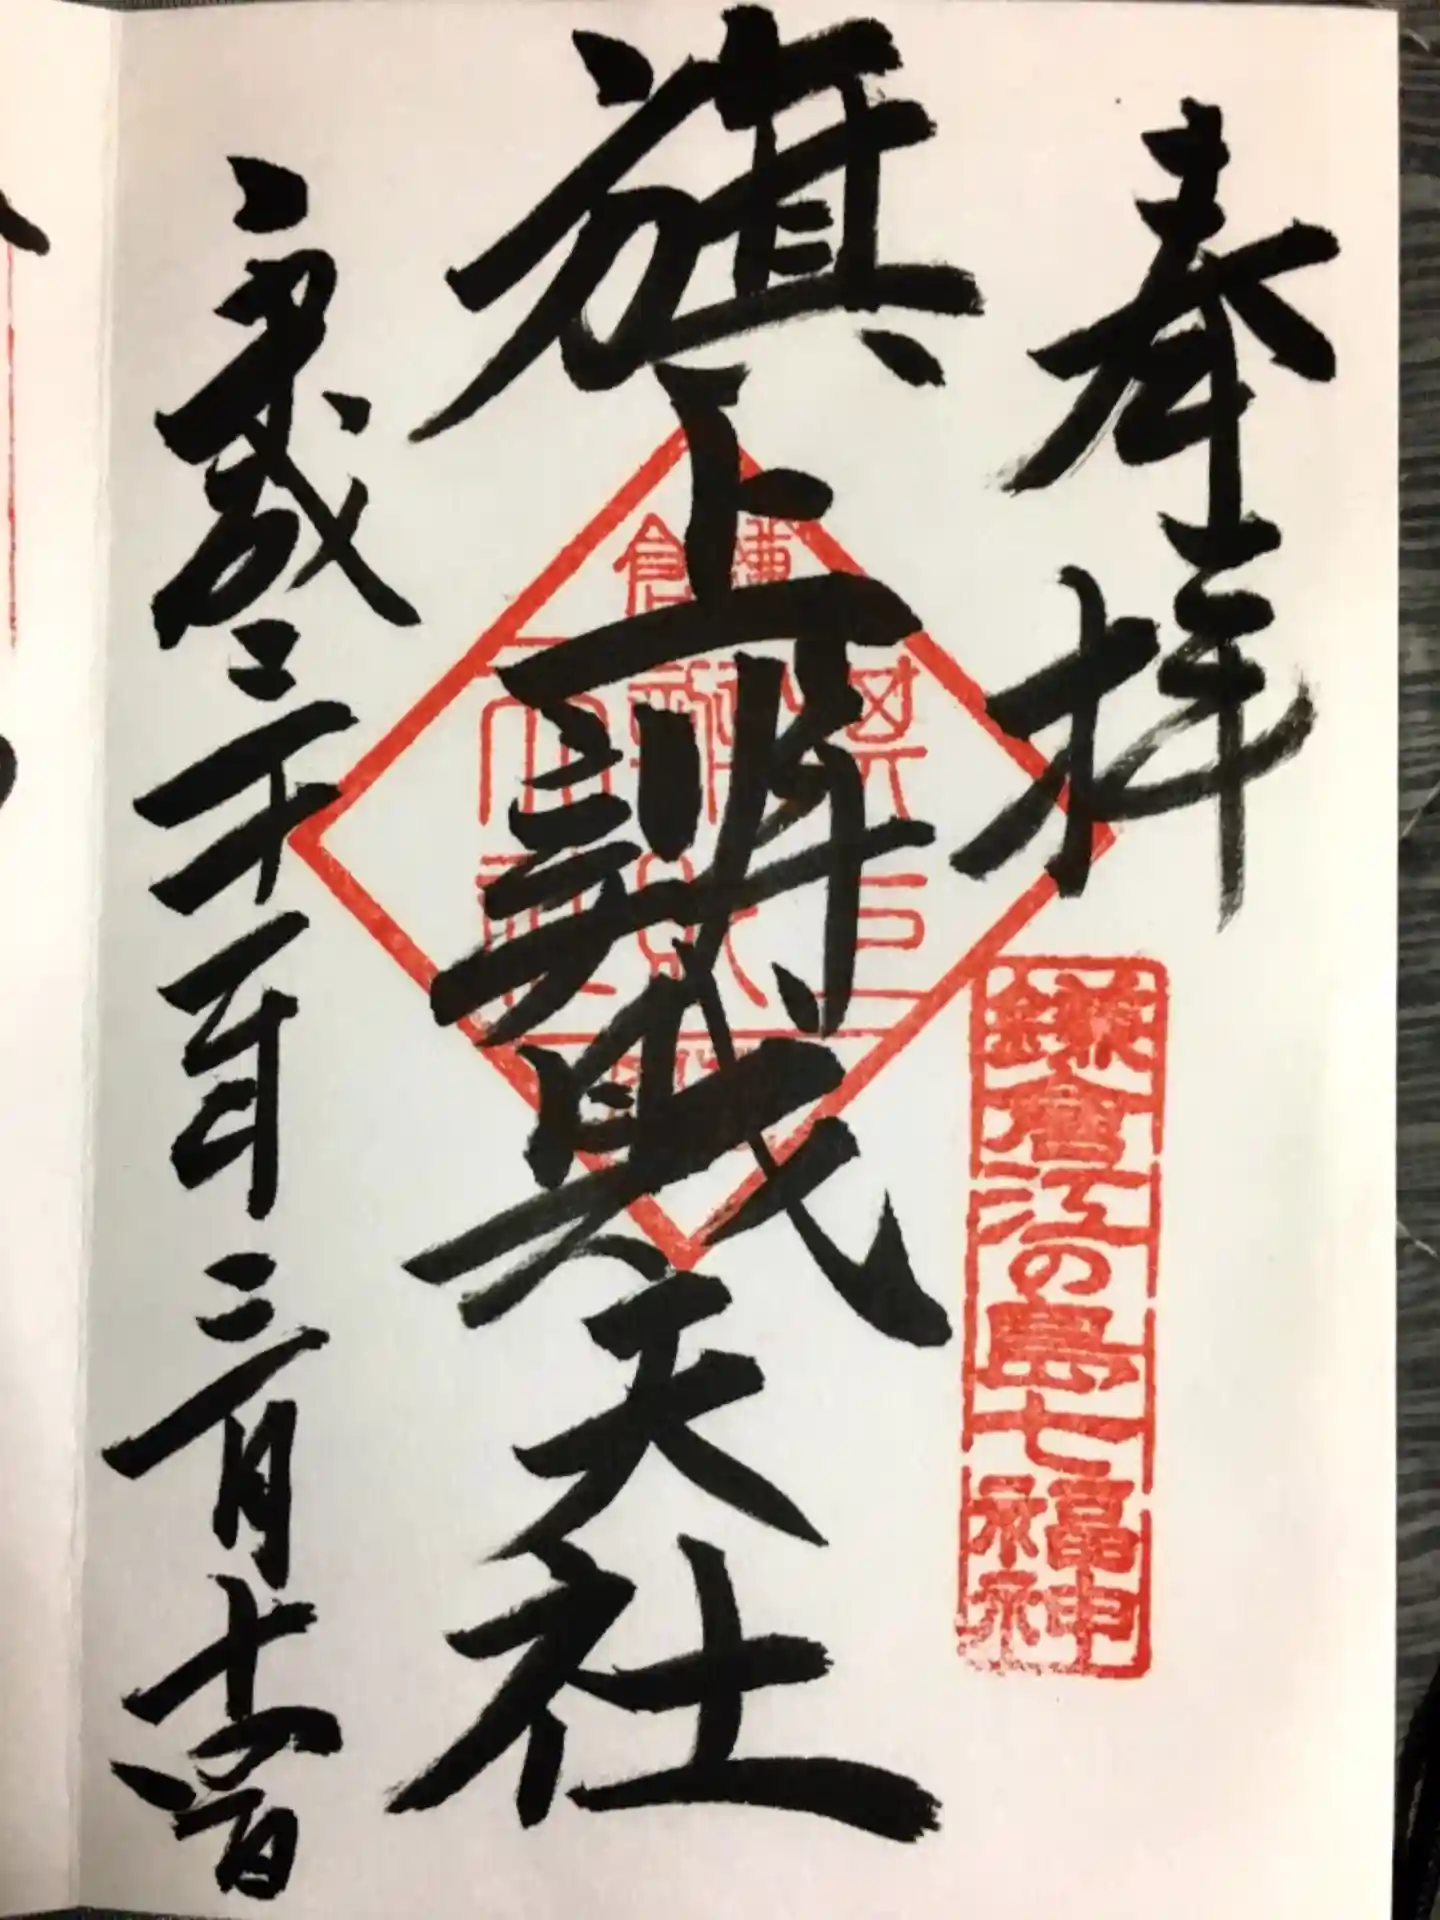 奉拝
鎌倉江の島七福神
旗上辨財天社
鎌倉
平成三十年三月十六日